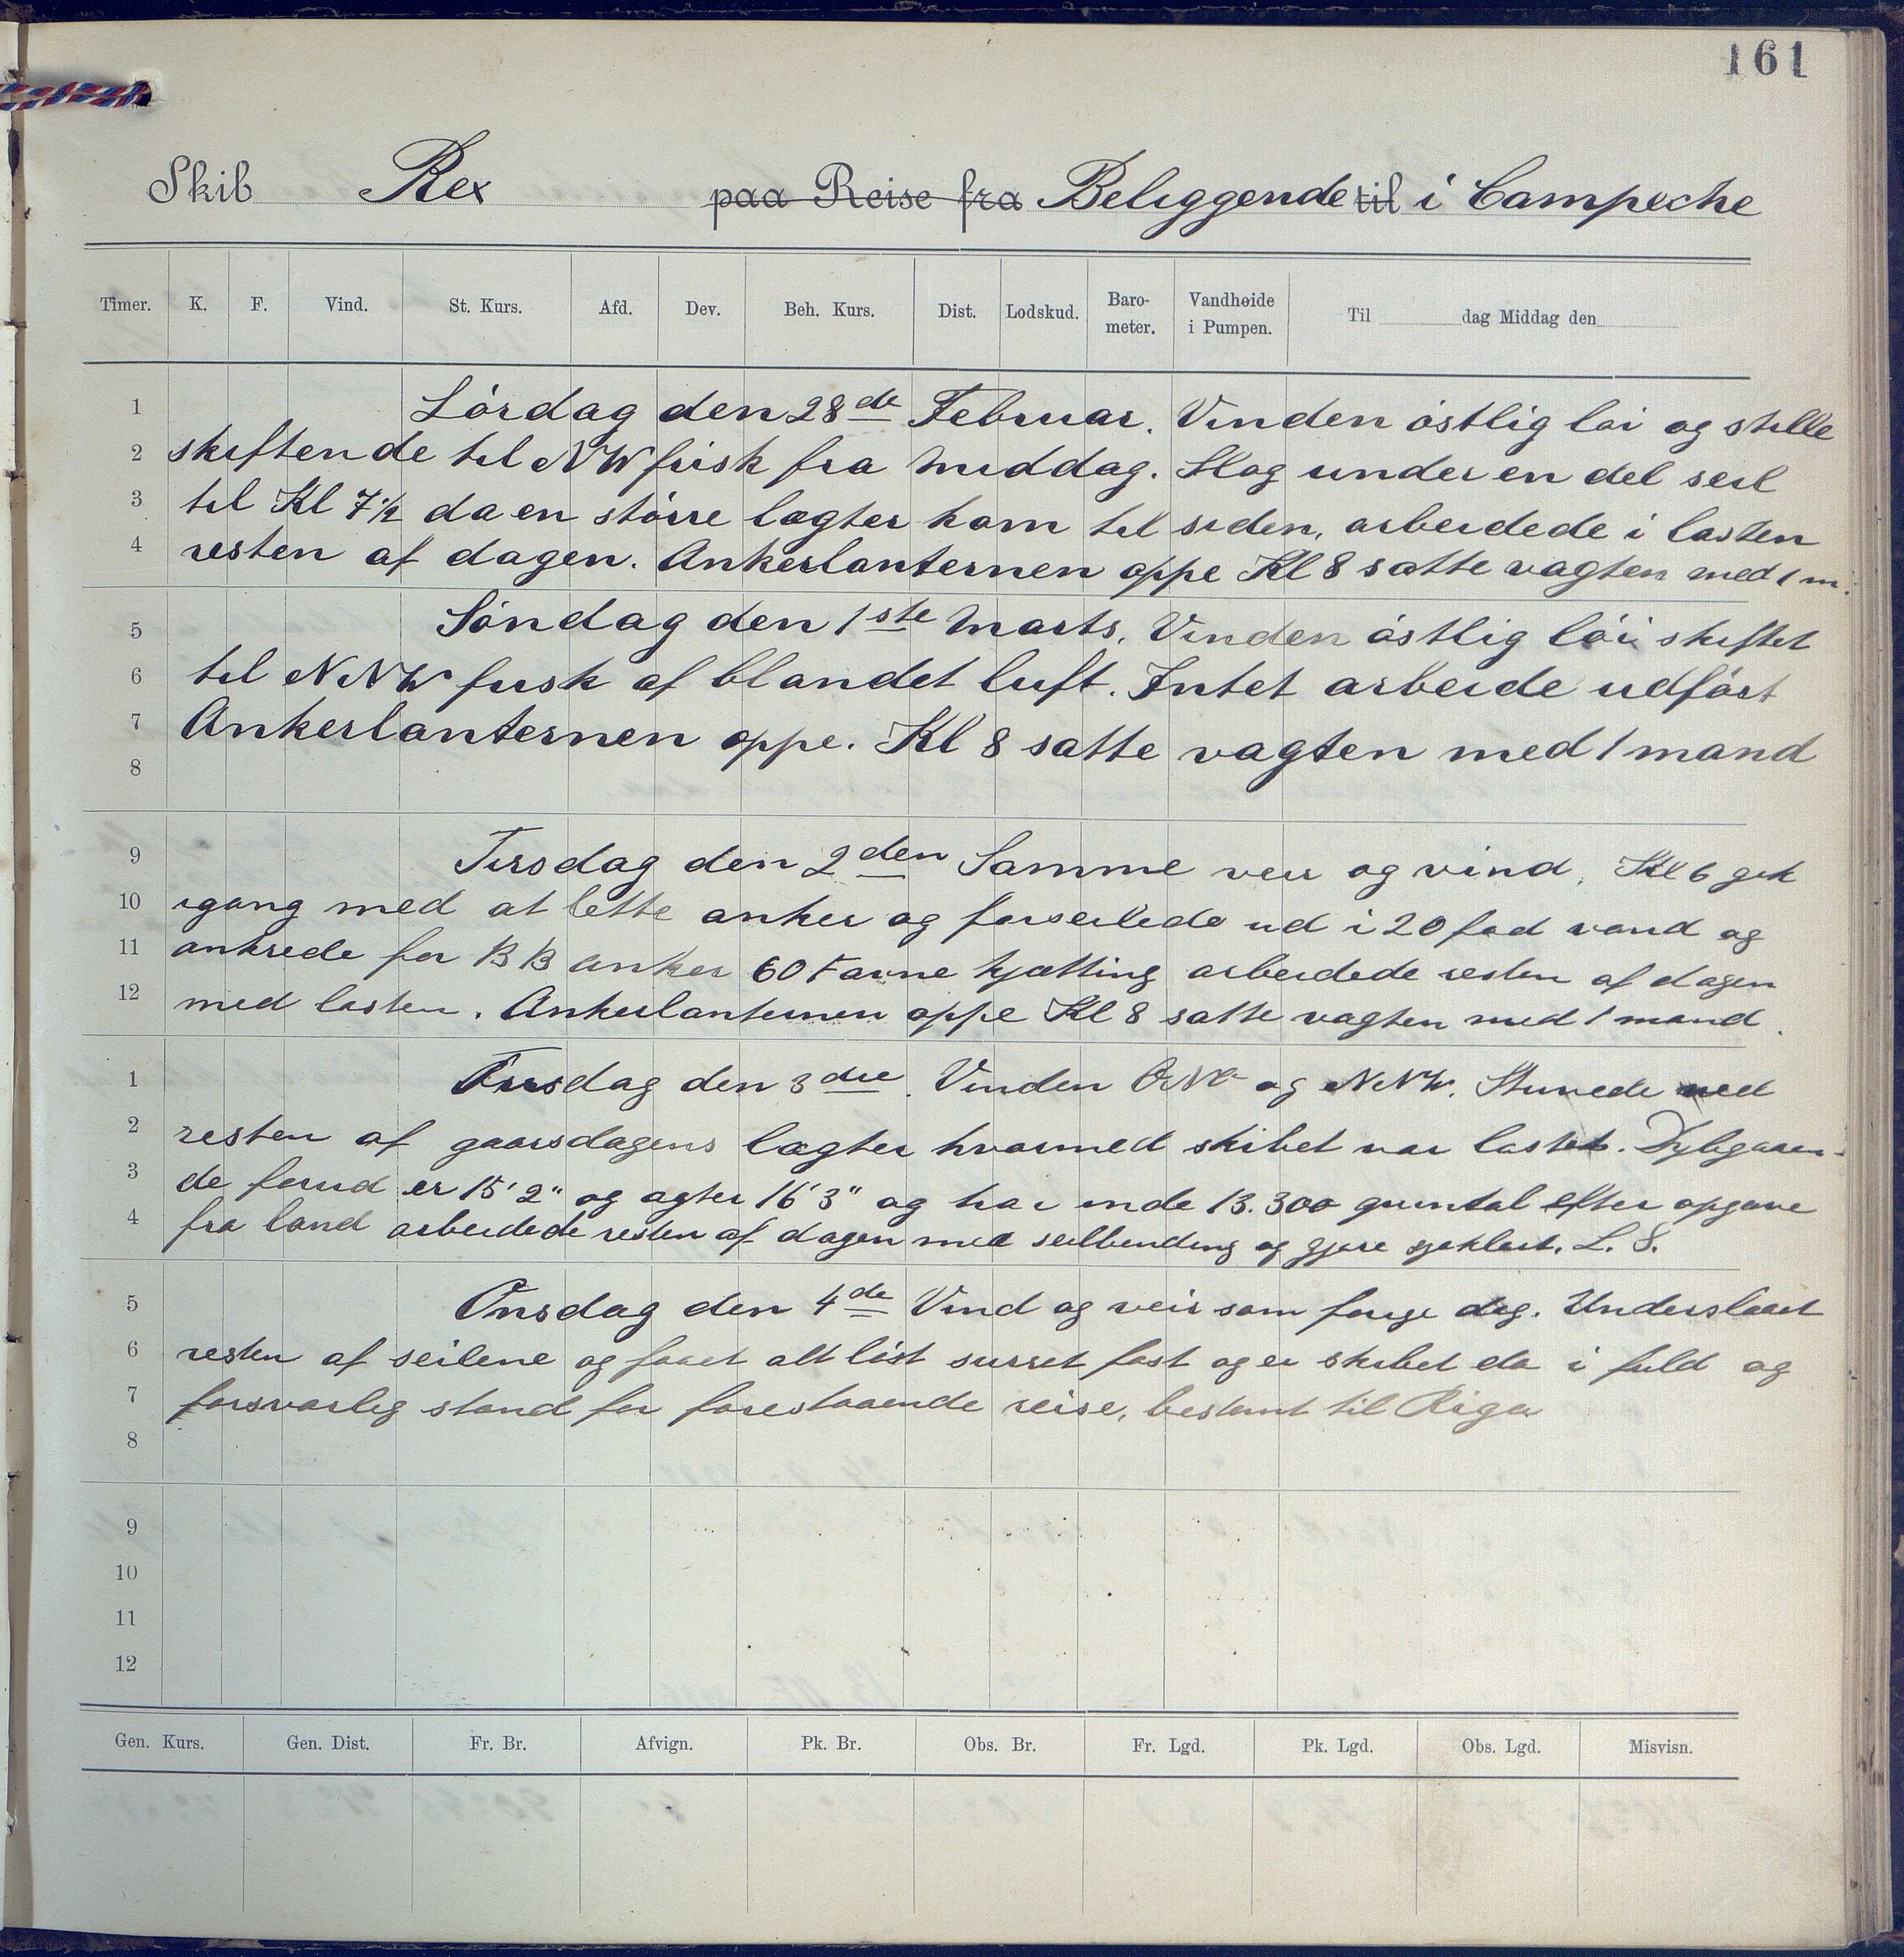 161
Skib Rex paa Reise fra Beliggende til i Campeche
Timer. K. F. Vind. St. Kurs. Afd. Dev. Beh. Kurs. Dist. Lodskud. Baro-meter. Vandhøide i Pumpen. Til dag Middag den
1 Lördag den 28de Februar. Vinden östlig löi og stille
2 skiftende til NW frisk fra Middag. Slog under en del seil
3 til Kl 7½ da en större lægter kom til siden, arbeidede i lasten
4 resten af dagen. Ankerlanternen oppe Kl 8 satte vagten med 1 m.
5 Söndag den 1ste Marts. Vinden östlig löi skiftet
6 til NNW frisk af blandet luft. Intet arbeide udfört
7 Ankerlanternen oppe. Kl 8 satte vagten med 1 mand
8
9 Tirsdag den 2den Samme veir og vind. Kl 6 gik
10 igang med at lette anker og forseilede ud i 20 fod vand og
11 ankrede for BB anker 60 Favne kjætting arbeidede resten af dagen
12 med lasten. Ankerlanternen oppe Kl 8 satte vagten med 1 mand.
1 Tirsdag den 3die. Vinden ONO og NNW. Stuvede ned
2 resten af gaarsdagens lægter hvormed skibet var lastet. Dybgaaen-
3 de forud er 15' 2" og agter 16' 3" og har inde 13.300 qvintal efter opgave
4 fra land arbeidede resten af dagen med seilbending og gjøre sjøklart. L. S.
5 Onsdag den 4de Vind og veir som forige dag. Underslaaet
6 resten af seilene og faaet alt löst surret fast og er skibet da i fuld og
7 forsvarlig stand for forestaaende reise, bestemt til Riga
8
9
10
11
12
Gen. Kurs. Gen. Dist. Fr. Br. Afvign. Pk. Br. Obs. Br. Fr. Lgd. Pk. Lgd. Obs. Lgd. Misvisn.